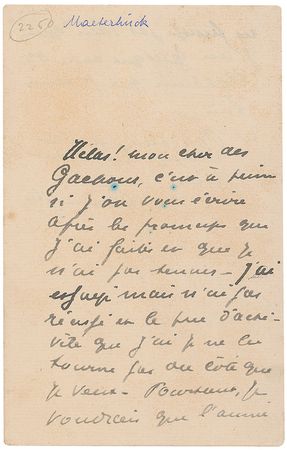 2250
Maeterlinck
Hélas! mon cher des
Gachons, c'est à peine
si j'ose vous écrire
après les promesses que
j'ai faites et que je
n'ai pas tenues – j'ai
essayé mais n'ai pas
réussi et le peu d'acti-
vité que j'ai je ne la
tourne pas du côté que
je veux – Pourtant, je
voudrais que l'année